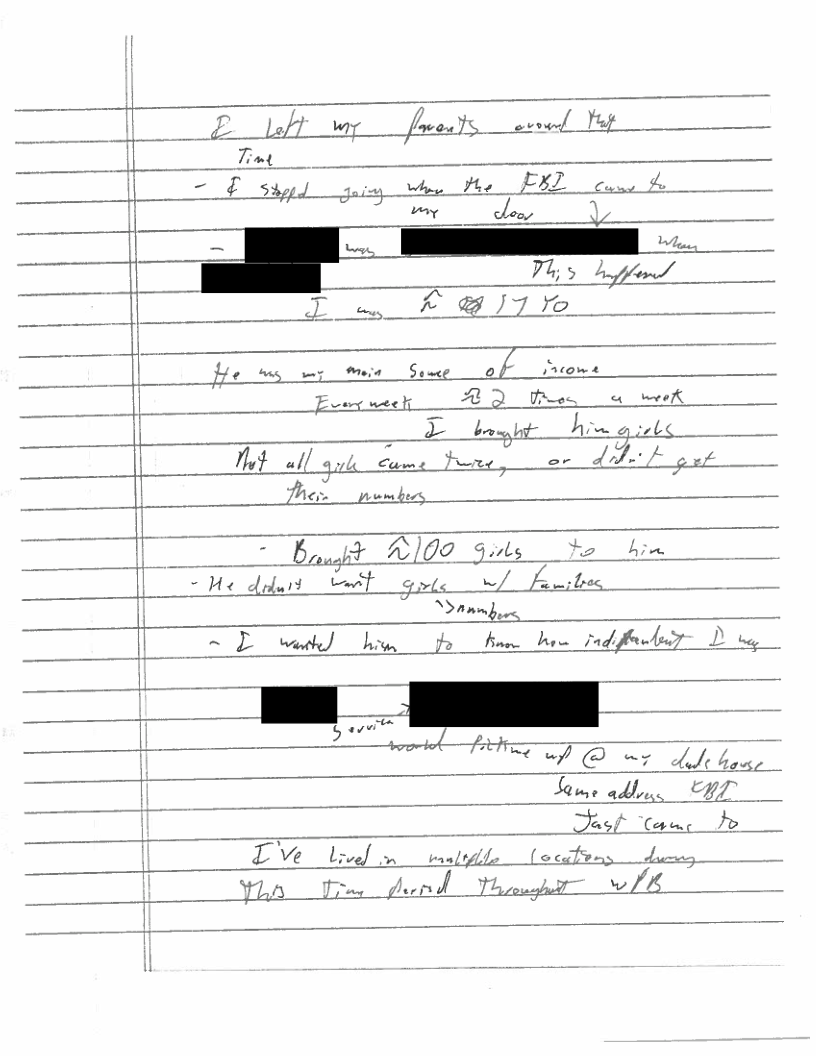 I Left my parents around that
Time
- I stopped going when the FBI came to
my door ↓
- was when
This happened
I was ~ 17 YO
He was my main source of income
Every week ~ 2 times a week
I brought him girls
Not all girls came twice, or didn't get
their numbers
- Brought ~100 girls to him
- He didn't want girls w/ families
> numbers
- I wanted him to know how independent I was
service >
would pick me up @ my dads house
Same address FBI
Just came to
I've Lived in multiple locations during
This Time period Throughout WPB